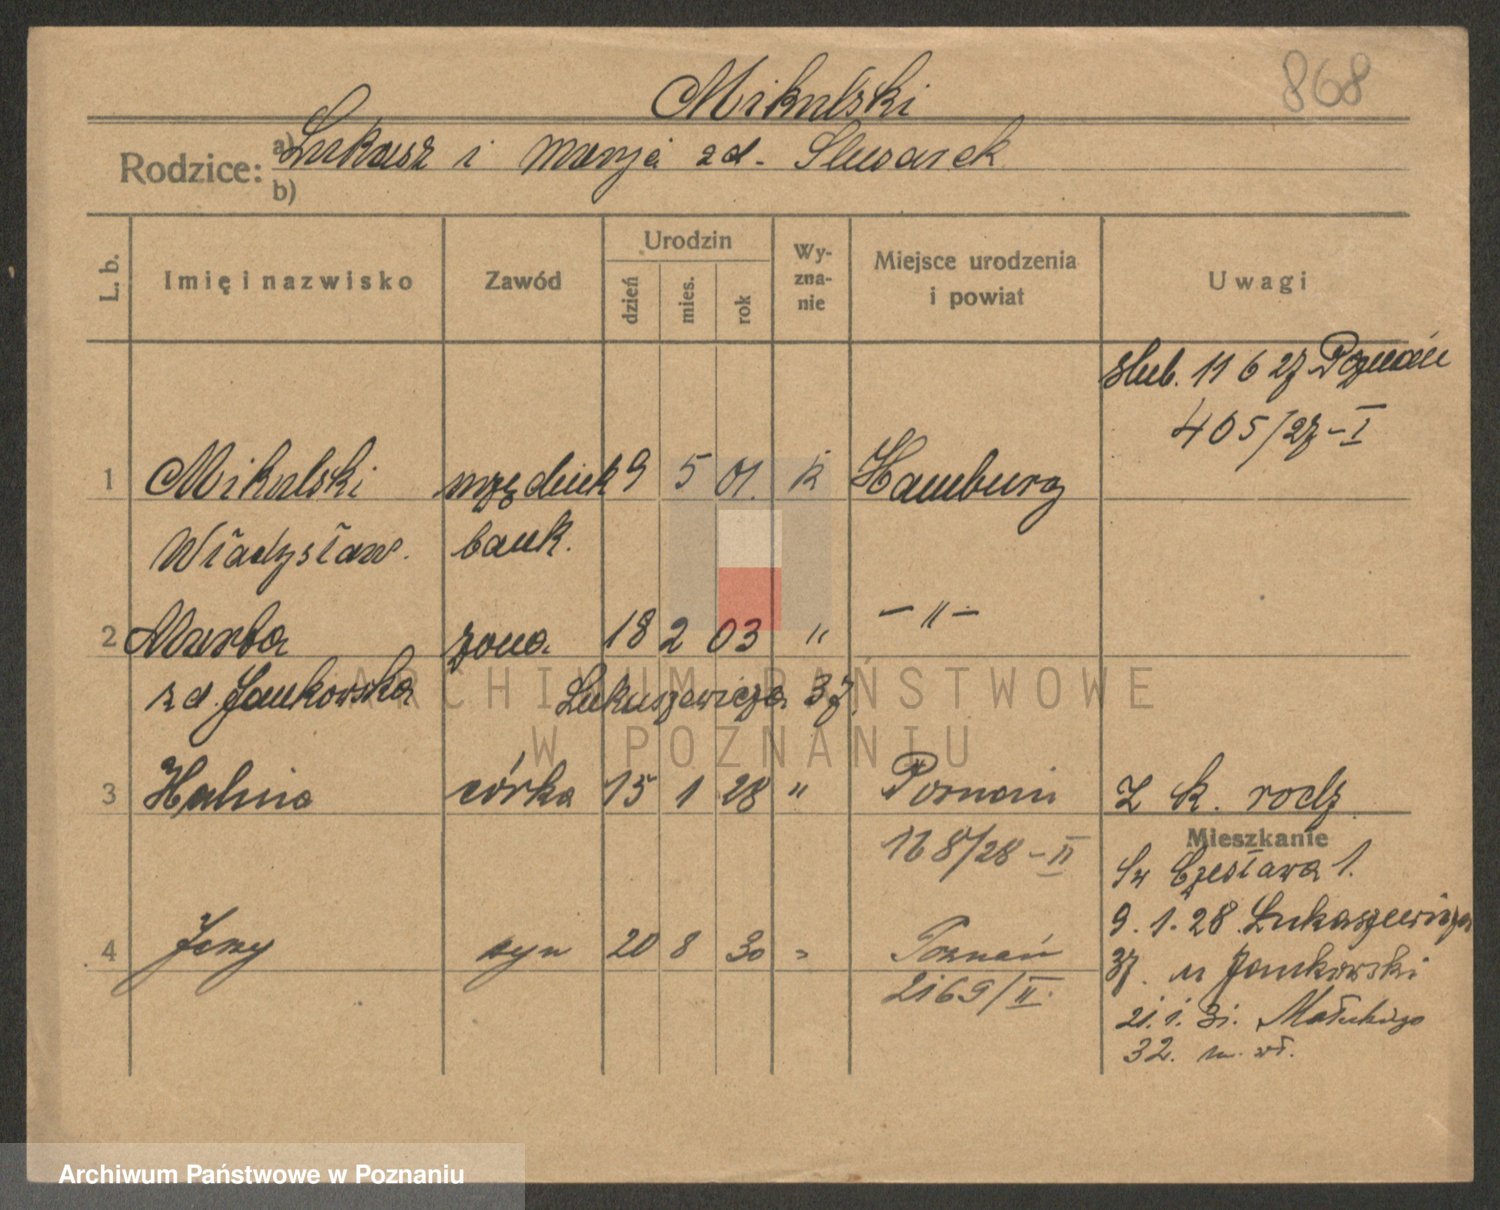 Mikulski
868
Rodzice: a) Łukasz i Marja zd. Ślusarek
b)
L. b. Imię i nazwisko Zawód Urodzin dzień mies. rok Wyznanie Miejsce urodzenia i powiat Uwagi
ślub. 11 6 27 Poznań
405/27-I
1 Mikulski urzędnik 9 5 01. k Hamburg
Władysław. bank.
2 Marta żona 18 2 03 " -"-
zd. Jankowska Łukaszewicza 37.
ARCHIWUM PAŃSTWOWE
W POZNANIU
3 Halina córka 15 1 28 " Poznań Z k. rodz.
168/28-II
Mieszkanie
Św Czesława 1.
9. 1. 28. Łukaszewicza
4 Jerzy syn 20 8 30 " Poznań
37. u Jankowski
2169/II.
21. 1. 31. Małeckiego
32. m. wł.
Archiwum Państwowe w Poznaniu